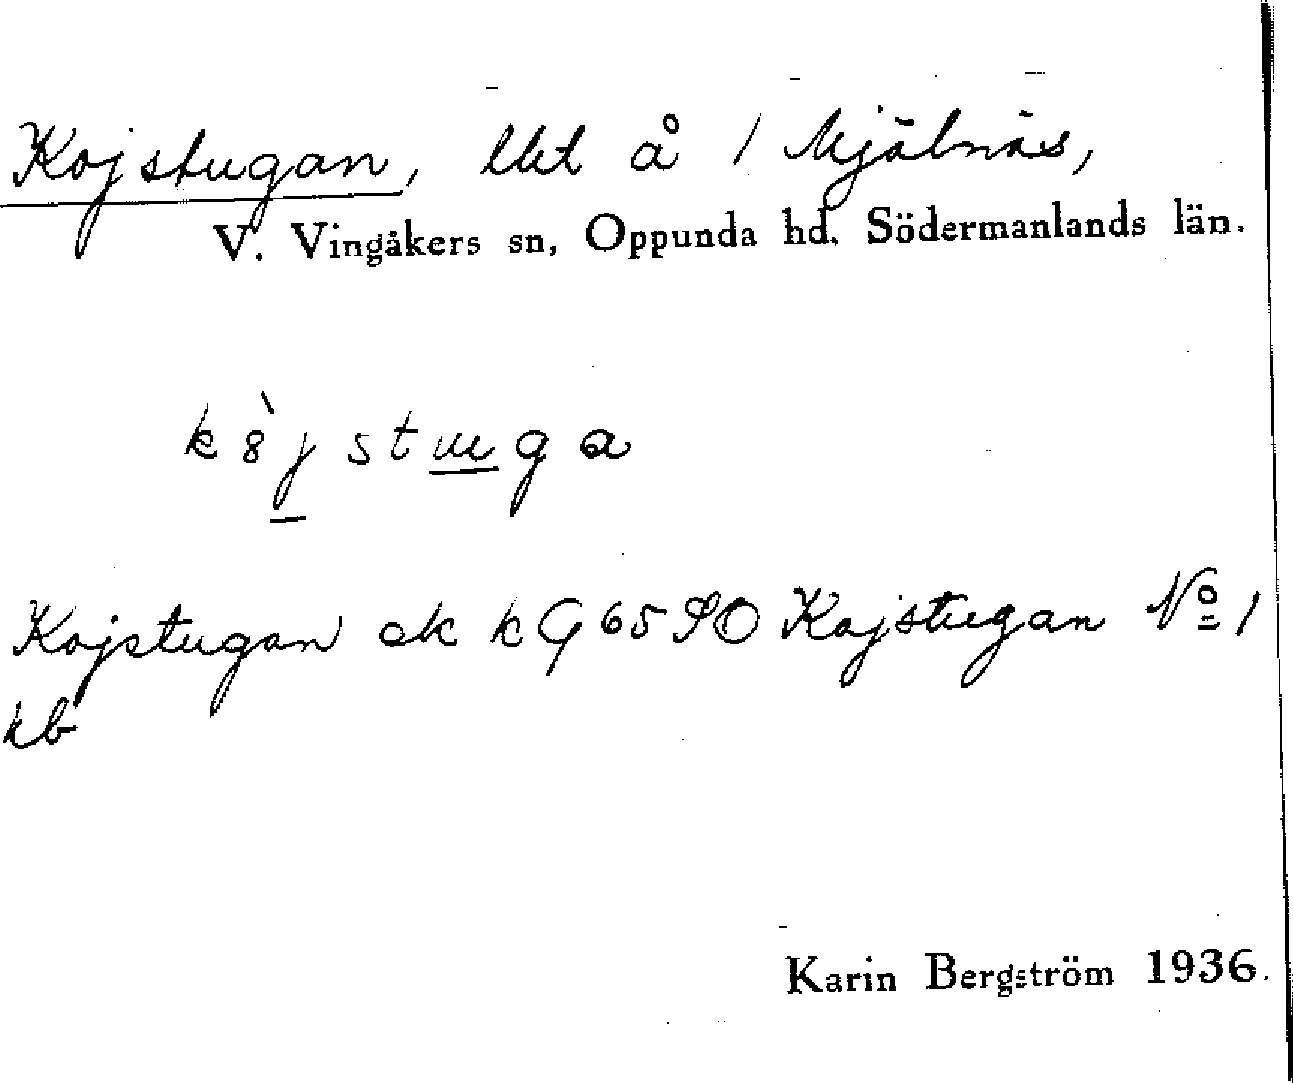 Kojstugan, lht å 1 Mjälnäs,
V. Vingåkers sn, Oppunda hd. Södermanlands län.
k8̀j stuga
Kojstugan ek kG 65 SO Kojstugan Nº 1
kb
Karin Bergström 1936.